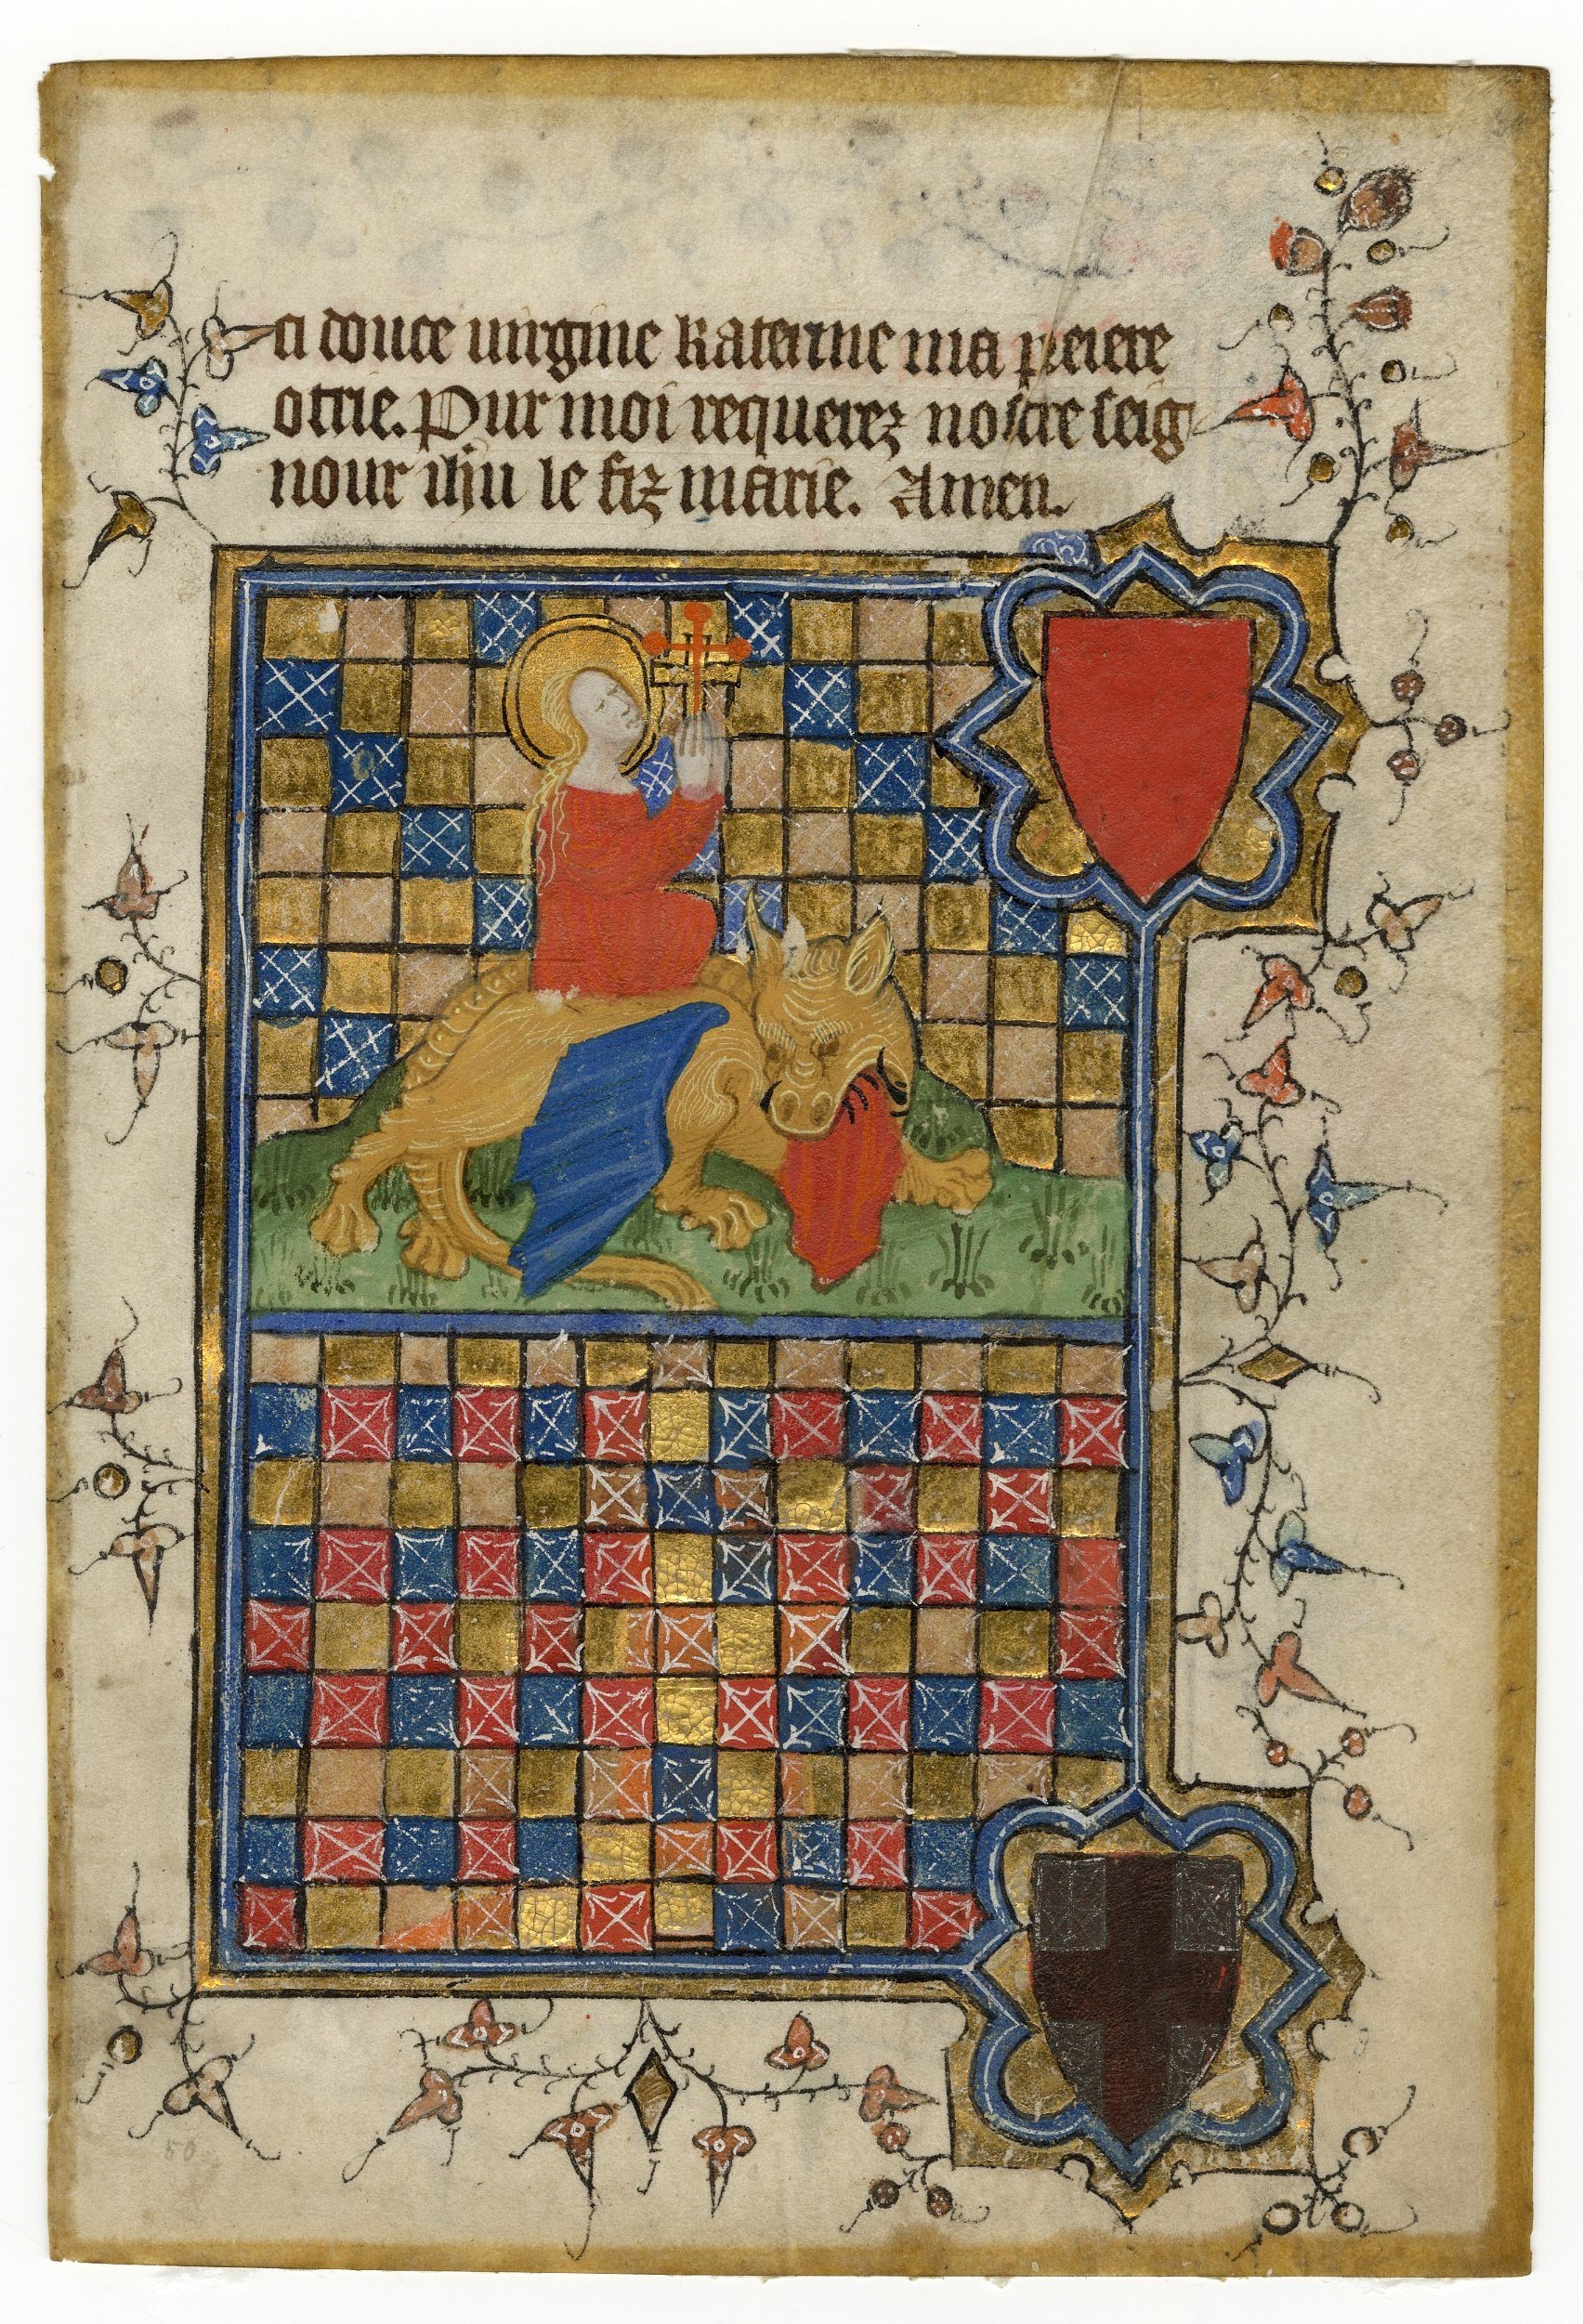 ci douce uirgine kateirne ma preiere
otrie. Pur moi requerez nostre seig
nour ihu le fiz marie. Amen.
50